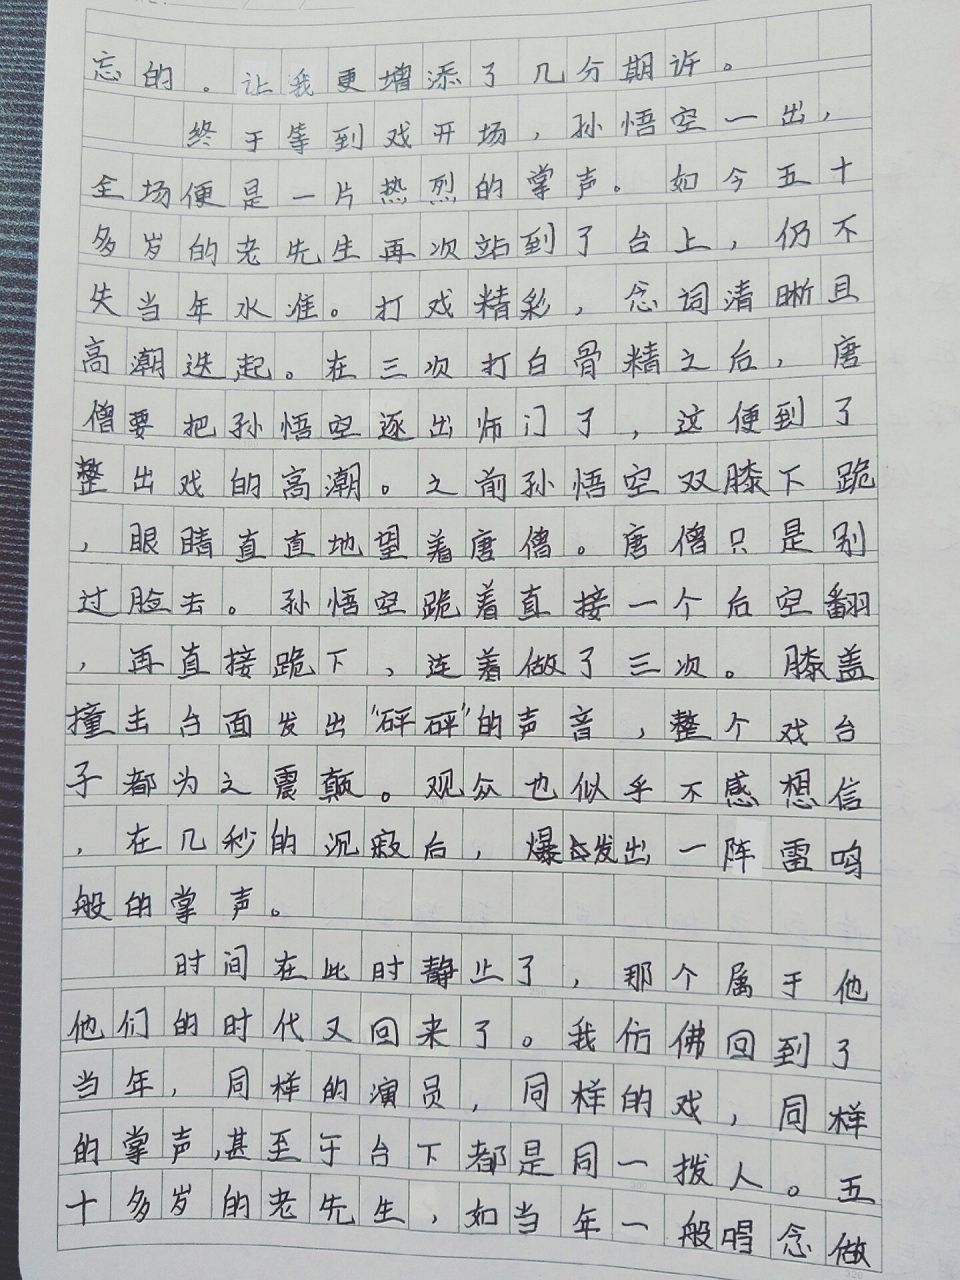 忘的。让我更增添了几分期许。
终于等到戏开场，孙悟空一出，
全场便是一片热烈的掌声。如今五十
多岁的老先生再次站到了台上，仍不
失当年水准。打戏精彩，念词清晰且
高潮迭起。在三次打白骨精之后，唐
僧要把孙悟空逐出师门了，这便到了
整出戏的高潮。之前孙悟空双膝下跪
，眼睛直直地望着唐僧。唐僧只是别
过脸去。孙悟空跪着直接一个后空翻
，再直接跪下，连着做了三次。膝盖
撞击台面发出“砰砰”的声音，整个戏台
子都为之震颠。观众也似乎不感想信
，在几秒的沉寂后，爆发出一阵雷鸣
般的掌声。
时间在此时静止了，那个属于他
他们的时代又回来了。我仿佛回到了
当年，同样的演员，同样的戏，同样
的掌声，甚至于台下都是同一拨人。五
十多岁的老先生，如当年一般唱念做